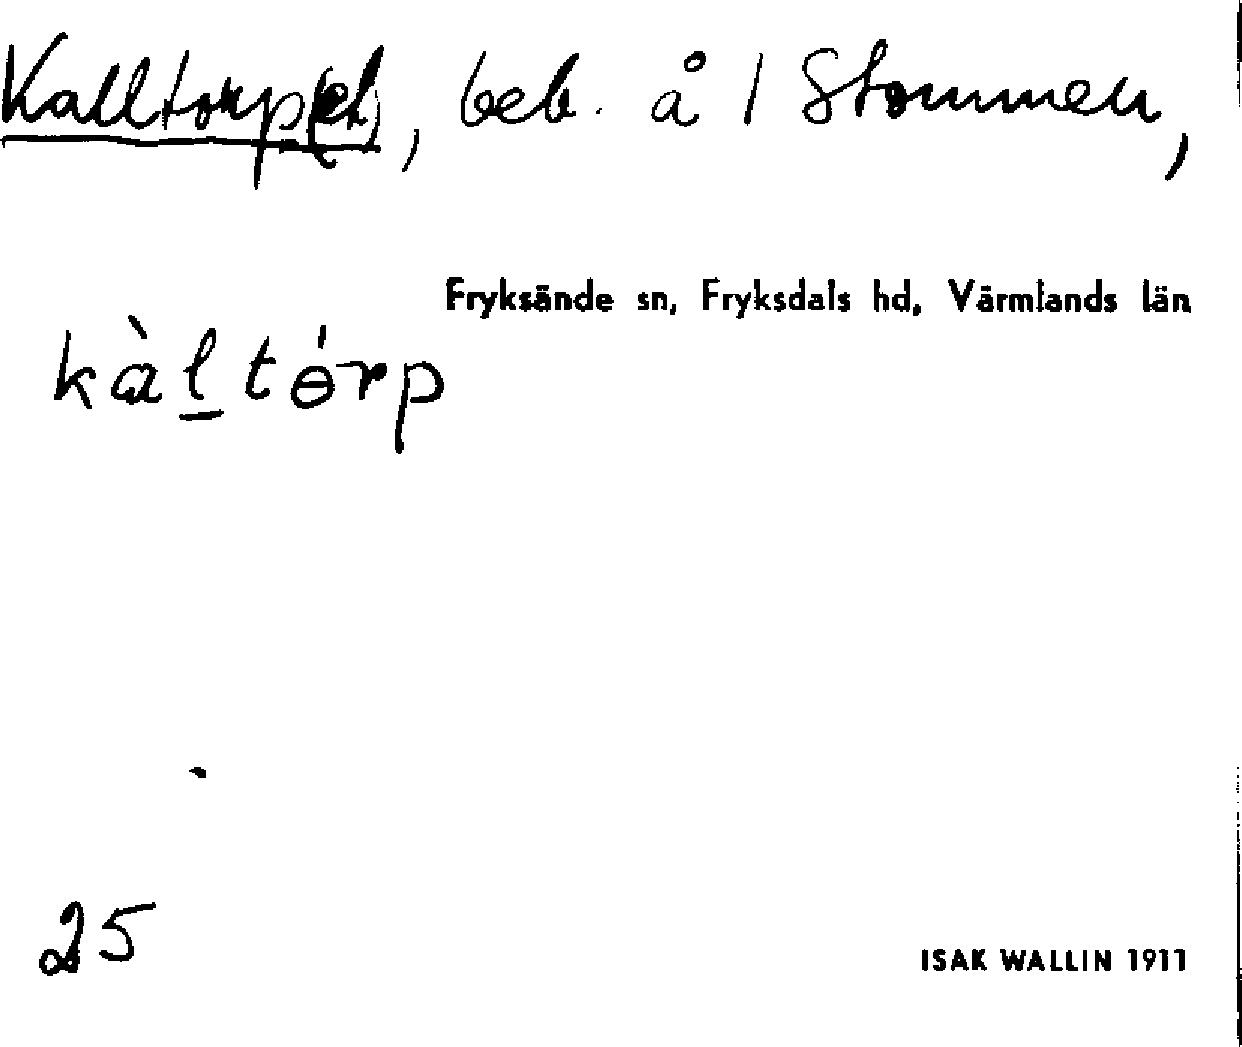 Kalltorp(et), beb. å 1 Stommen,
Fryksände sn, Fryksdals hd, Värmlands län
kàl̲tө́rp
25
ISAK WALLIN 1911